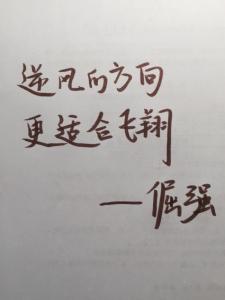 逆风的方向
更适合飞翔
—倔强